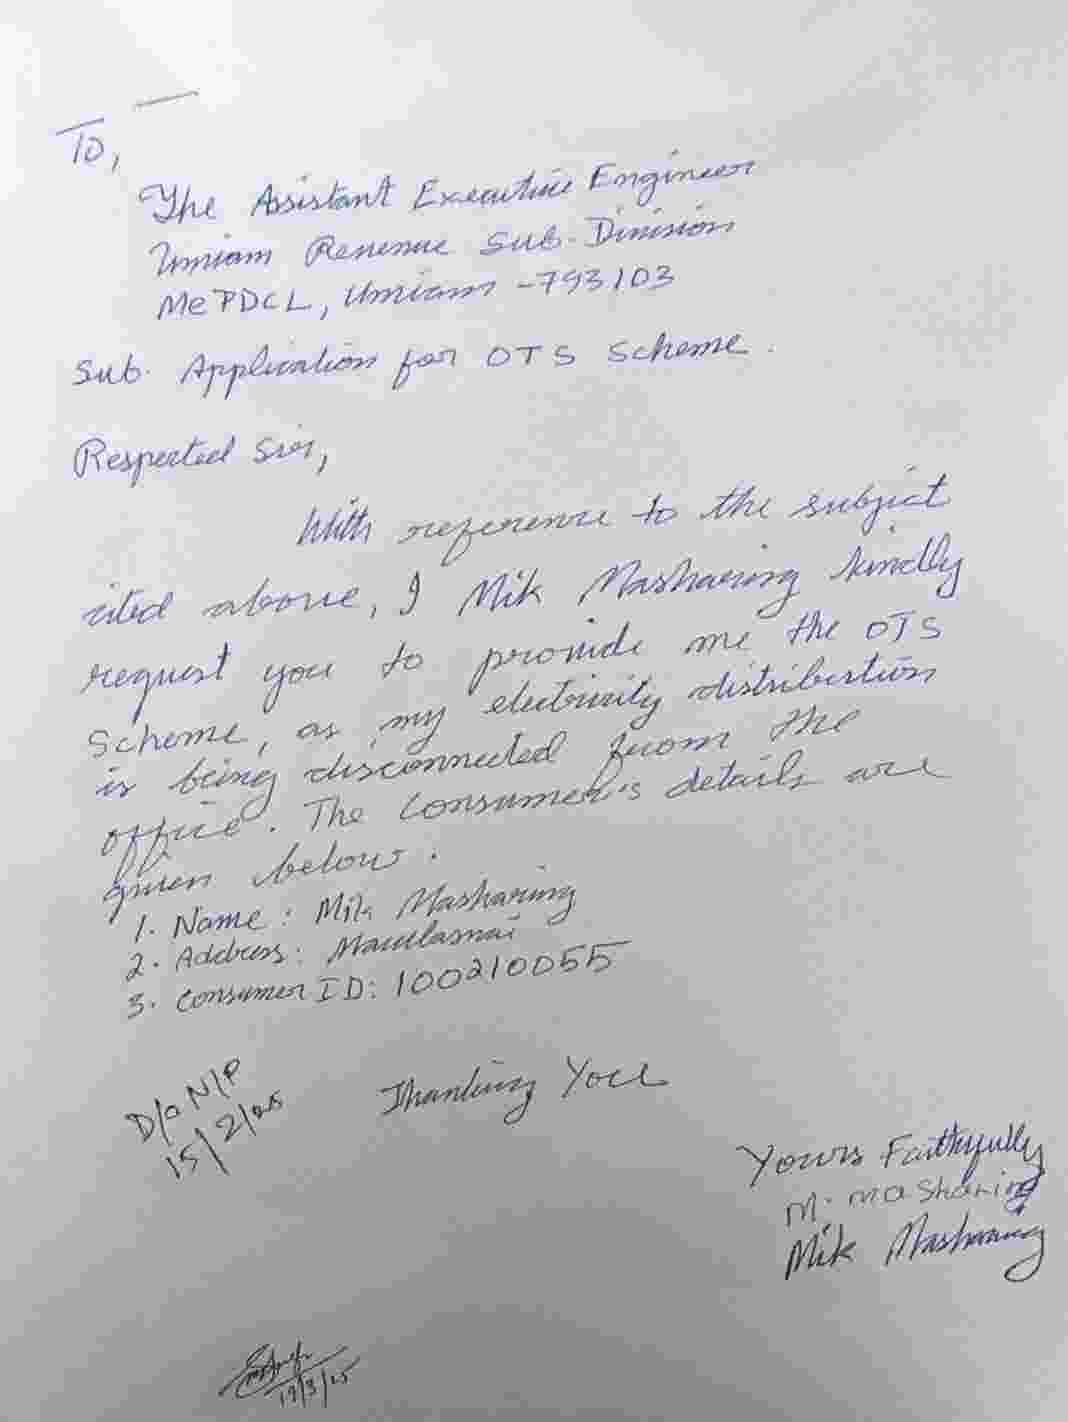 To,
The Assistant Executive Engineer
Umiam Revenue Sub-Division
MePDCL, Umiam -793103
Sub. Application for OTS Scheme.
Respected Sir,
With reference to the subject
cited above, I Mik Masharing kindly
request you to provide me the OTS
Scheme, as my electricity distribution
is being disconnected from the
office. The Consumer's details are
given below.
1. Name: Mik Masharing
2. Address: Mawlasnai
3. Consumer ID: 100210055
Thanking You
D/o N/P
15/2/25
Yours Faithfully
M. Masharing
Mik Masharing
17/3/25